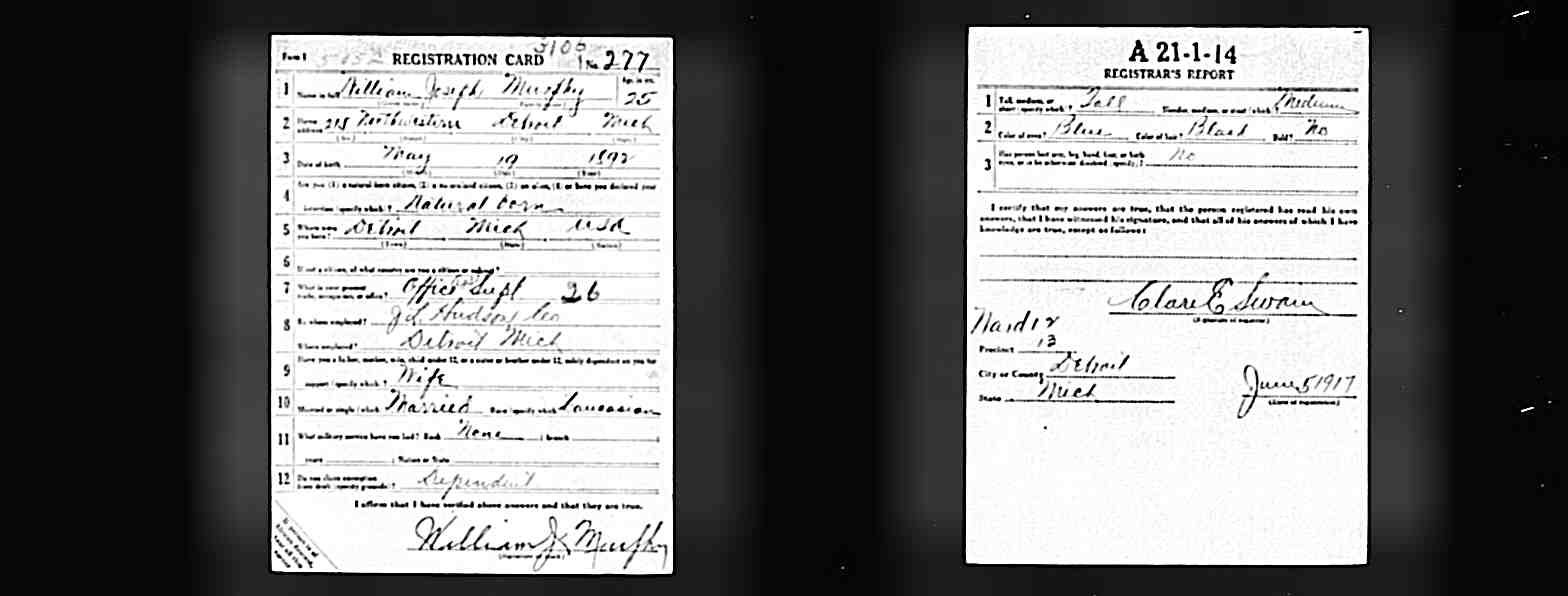 Form 1 REGISTRATION CARD 3106 No. 277
1 Name in full William Joseph Murphy Age, in yrs. 25
(Given name) (Family name)
2 Home address 215 Northwestern Detroit Mich
(No.) (Street) (City) (State)
3 Date of birth May 19 1892
(Month) (Day) (Year)
Are you (1) a natural born citizen, (2) a naturalized citizen, (3) an alien, (4) or have you declared your
4 intention (specify which)? Natural born
5 Where were you born? Detroit Mich USA
(Town) (State) (Nation)
6 If not a citizen, of what country are you a citizen or subject?
7 What is your present trade, occupation, or office? Office Supt 26
8 By whom employed? J L Hudson Co
Where employed? Detroit Mich
Have you a father, mother, wife, child under 12, or a sister or brother under 12, solely dependent on you for
9 support (specify which)? Wife
10 Married or single (which) Married Race (specify which) Caucasian
11 What military service have you had? Rank None ; branch
years ; Nation or State
12 Do you claim exemption from draft (specify grounds)? Dependent
I affirm that I have verified above answers and that they are true.
William J Murphy
(Signature or mark)
A 21-1-14
REGISTRAR'S REPORT
1 Tall, medium, or short (specify which)? Tall Slender, medium, or stout (which)? Medium
2 Color of eyes? Blue Color of hair? Black Bald? No
3 Has person lost arm, leg, hand, foot, or both eyes, or is he otherwise disabled (specify)? No
I certify that my answers are true, that the person registered has read his own
answers, that I have witnessed his signature, and that all of his answers of which I have
knowledge are true, except as follows:
Clare E Swain
(Signature of registrar)
Ward 12
Precinct 13
City or County Detroit
State Mich
June 5 1917
(Date of registration)